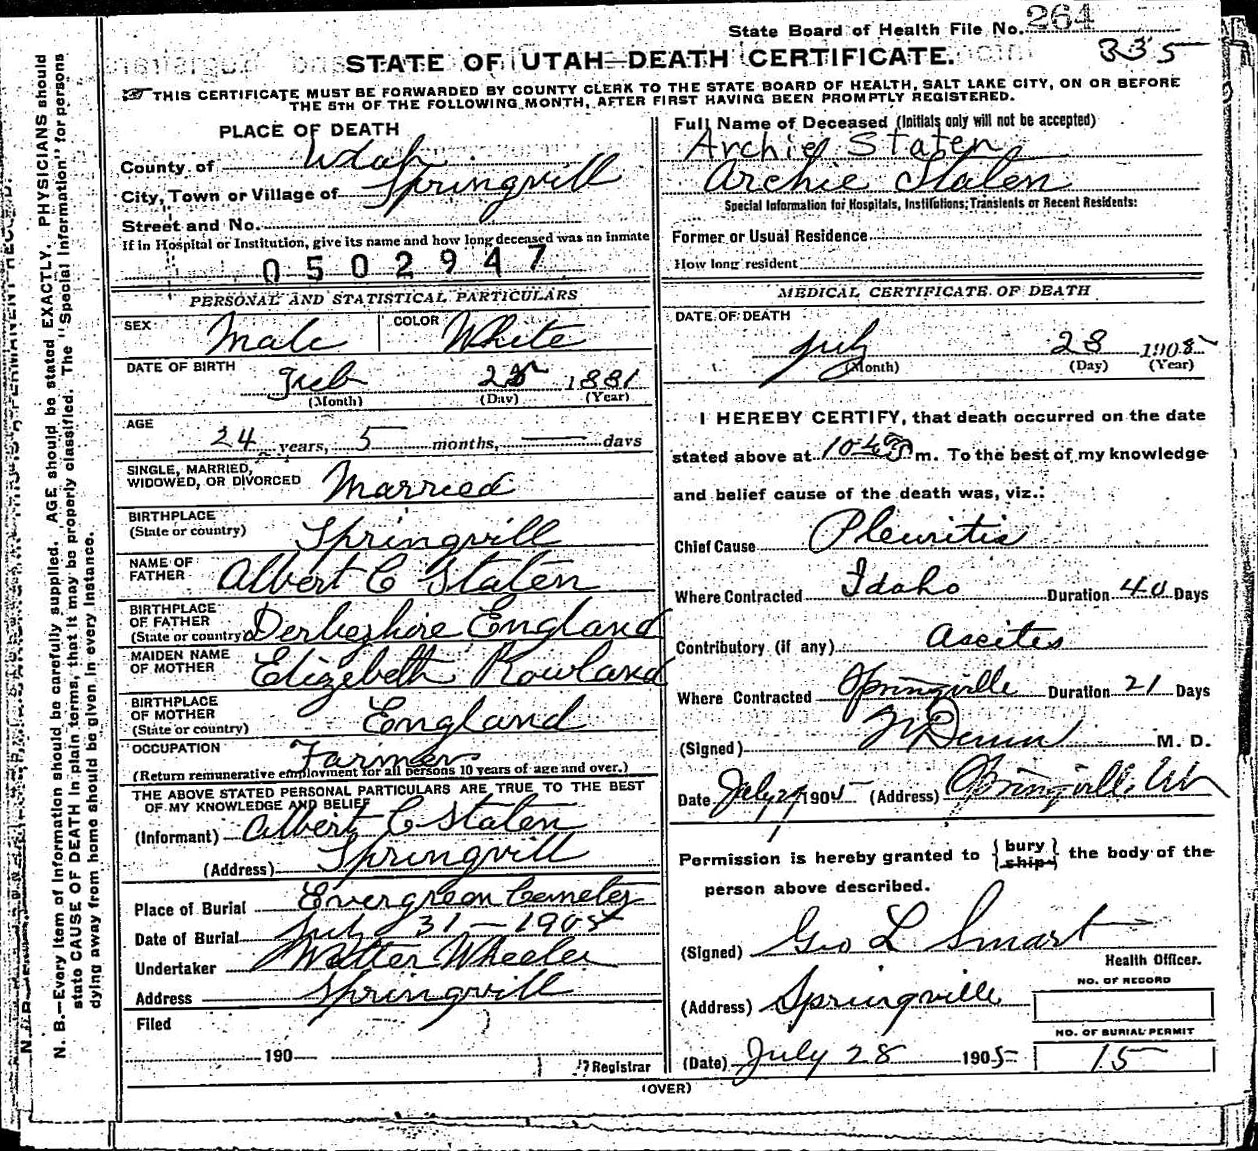 State Board of Health File No. 264
335
STATE OF UTAH—DEATH CERTIFICATE.
THIS CERTIFICATE MUST BE FORWARDED BY COUNTY CLERK TO THE STATE BOARD OF HEALTH, SALT LAKE CITY, ON OR BEFORE
THE 5TH OF THE FOLLOWING MONTH, AFTER FIRST HAVING BEEN PROMPTLY REGISTERED.
PLACE OF DEATH
County of Utah
City, Town or Village of Springvill
Street and No.
If in Hospital or Institution, give its name and how long deceased was an inmate
0502947
PERSONAL AND STATISTICAL PARTICULARS
SEX Male COLOR White
DATE OF BIRTH Feb 1881
(Month) (Day) (Year)
AGE 24 years, 5 months, — days
SINGLE, MARRIED,
WIDOWED, OR DIVORCED Married
BIRTHPLACE
(State or country) Springvill
NAME OF
FATHER Albert C Staten
BIRTHPLACE
OF FATHER
(State or country) Derbeshire England
MAIDEN NAME
OF MOTHER Elizebeth Rowland
BIRTHPLACE
OF MOTHER
(State or country) England
OCCUPATION Farmer
(Return remunerative employment for all persons 10 years of age and over.)
THE ABOVE STATED PERSONAL PARTICULARS ARE TRUE TO THE BEST
OF MY KNOWLEDGE AND BELIEF
(Informant) Albert C Staten
(Address) Springvill
Place of Burial Evergreen Cemeter
Date of Burial July 31 — 1905
Undertaker Walter Wheeler
Address Springvill
Filed
190
Registrar
Full Name of Deceased (Initials only will not be accepted)
Archie Staten
Archie Staten
Special Information for Hospitals, Institutions, Transients or Recent Residents:
Former or Usual Residence
How long resident
MEDICAL CERTIFICATE OF DEATH
DATE OF DEATH
July 28 1905
(Month) (Day) (Year)
I HEREBY CERTIFY, that death occurred on the date
stated above at m. To the best of my knowledge
and belief cause of the death was, viz.:
Chief Cause Pleuritis
Where Contracted Idaho Duration 40 Days
Contributory (if any) Ascites
Where Contracted Springville Duration 21 Days
(Signed) M. D.
Date July 29 1905 (Address) Springville, Ut
Permission is hereby granted to {bury ship} the body of the
person above described.
(Signed) Geo L Smart
Health Officer.
(Address) Springville
NO. OF RECORD
NO. OF BURIAL PERMIT
(Date) July 28 1905 15
(OVER)
N. B.—Every item of information should be carefully supplied. AGE should be stated EXACTLY. PHYSICIANS should
state CAUSE OF DEATH in plain terms, that it may be properly classified. The "Special Information" for persons
dying away from home should be given in every instance.